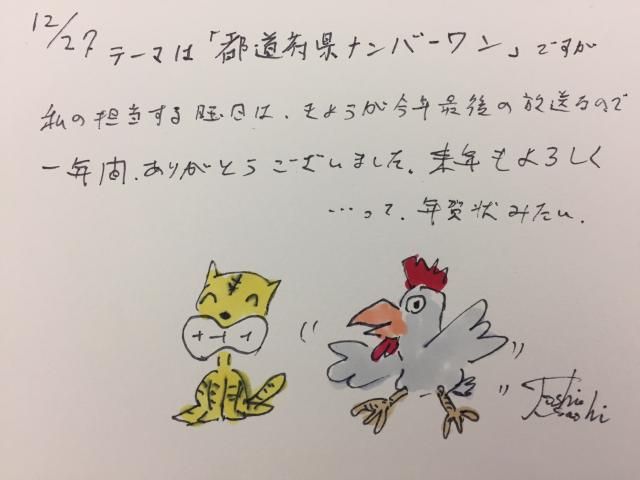 12/27 テーマは「都道府県ナンバーワン」ですが
私の担当する曜日は、きょうが今年最後の放送なので
一年間、ありがとうございました。来年もよろしく
…って、年賀状みたい。